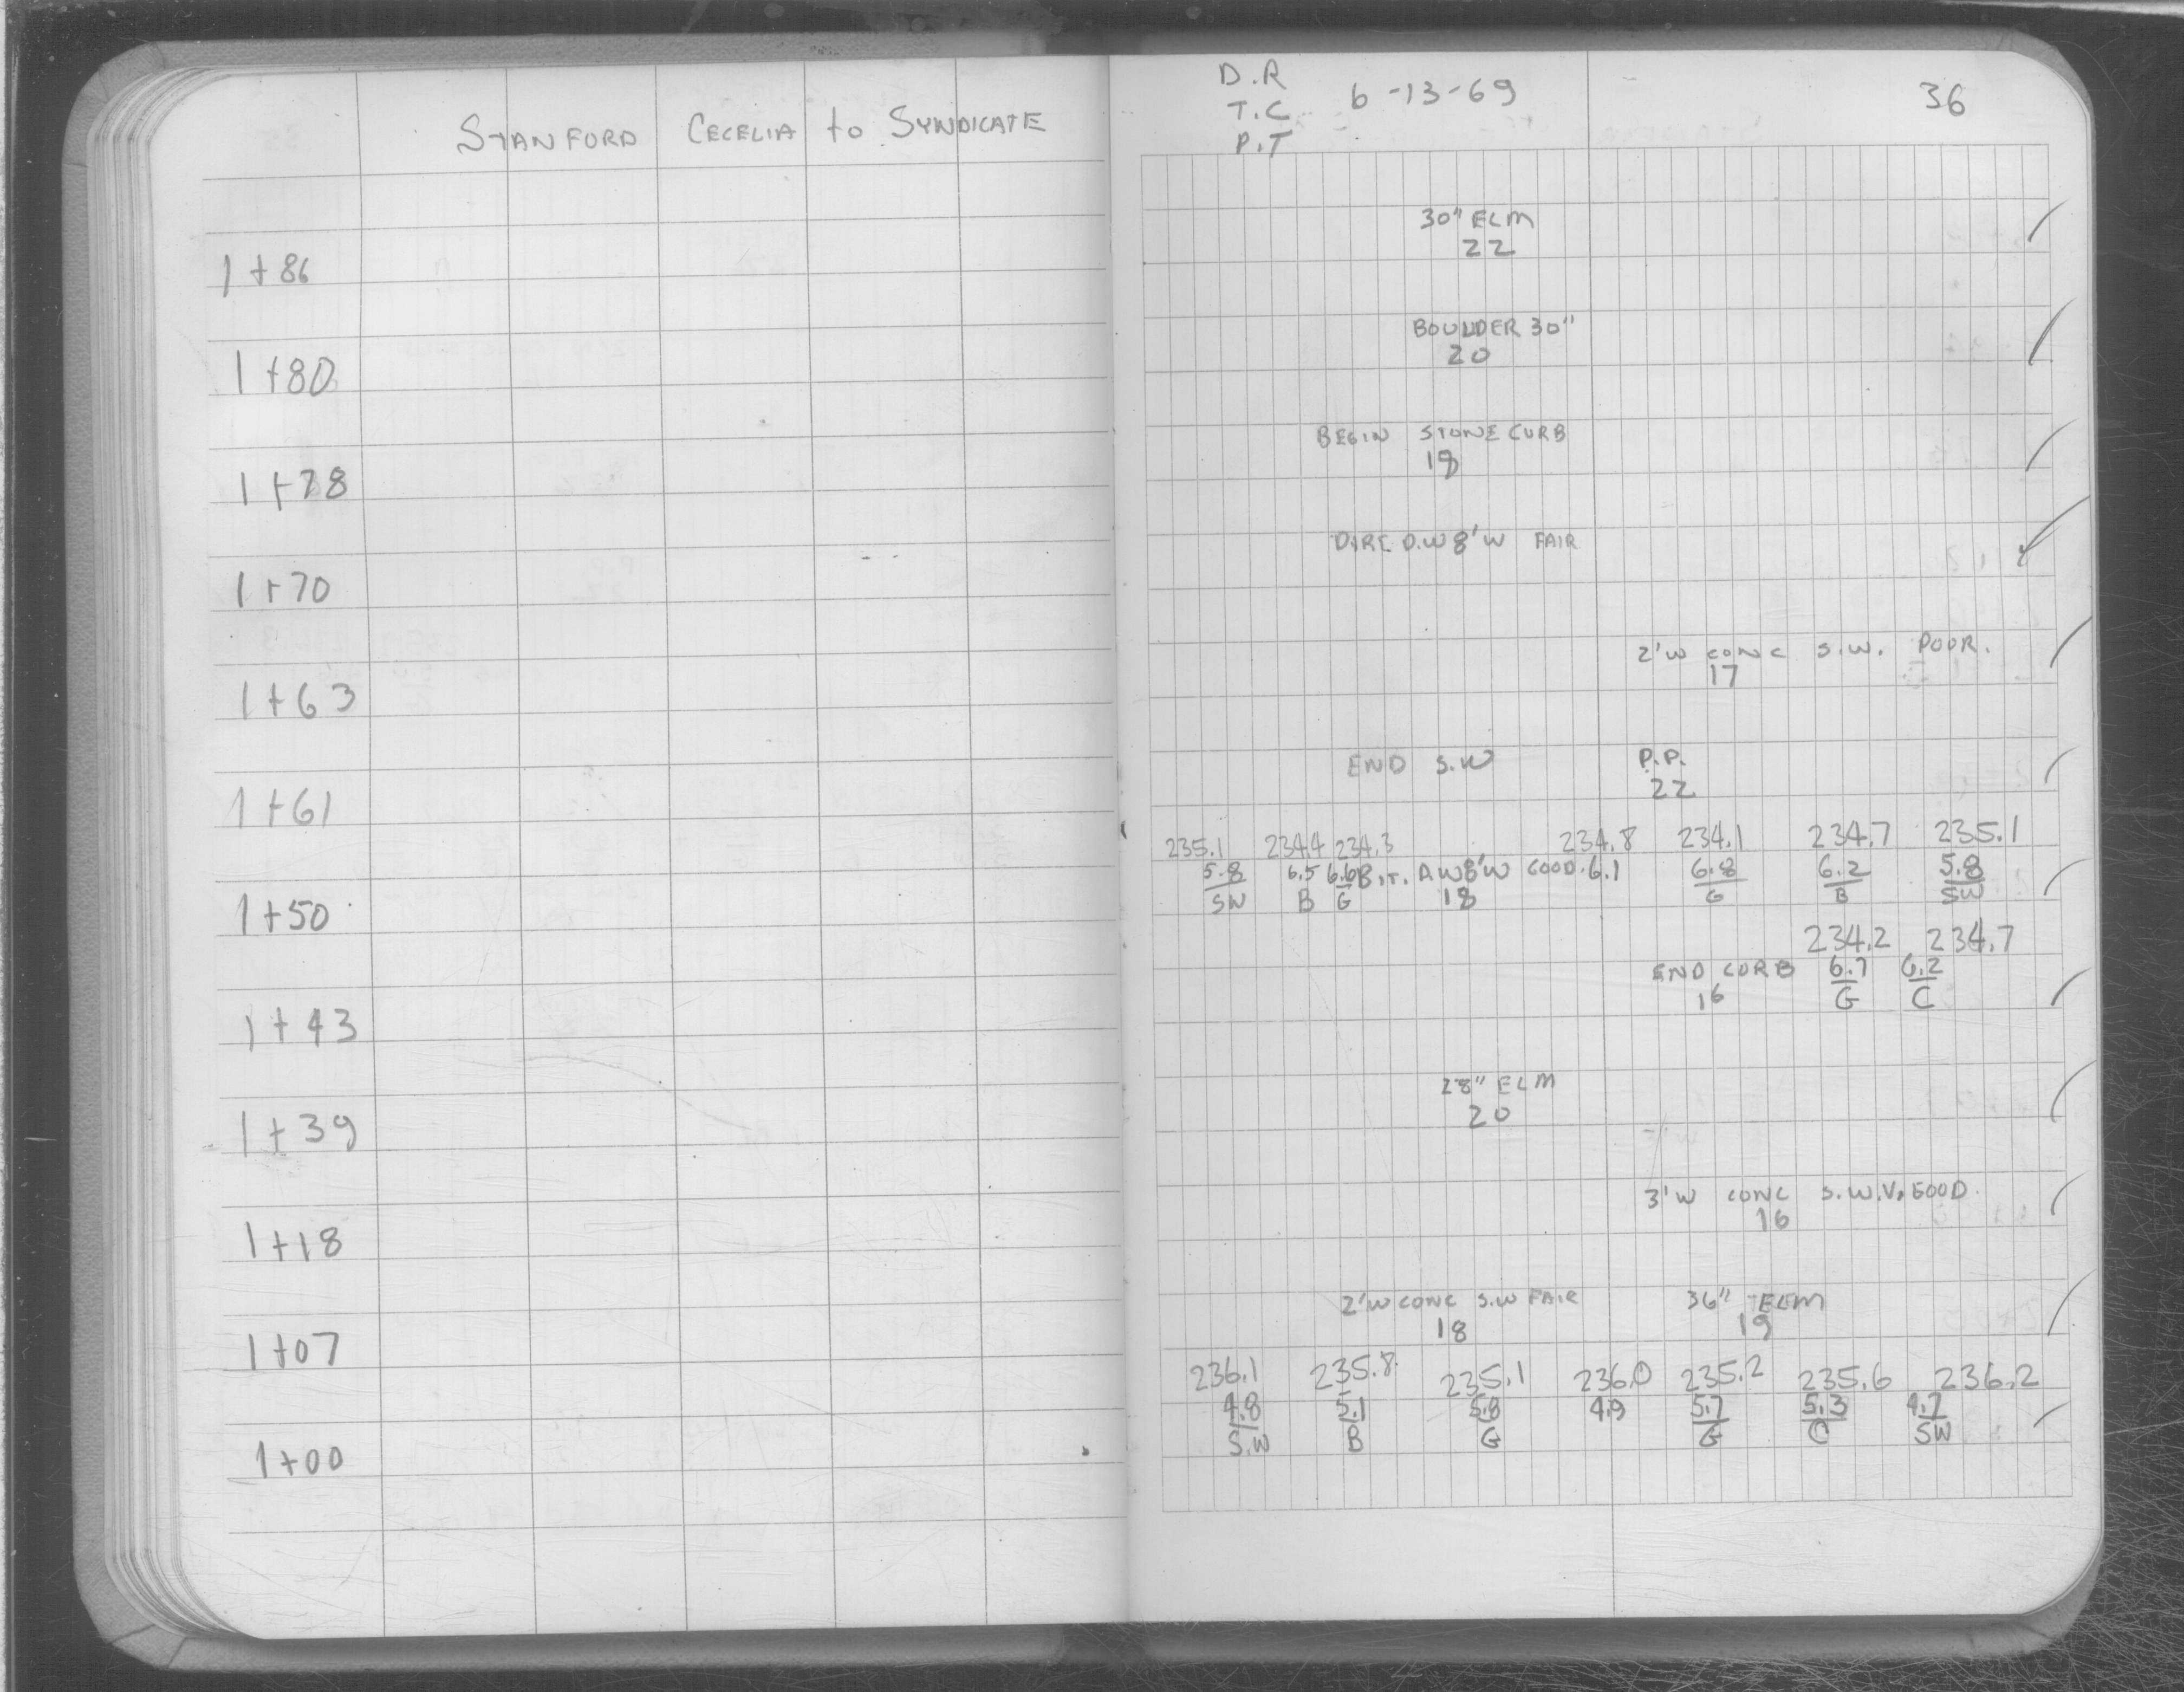 STANFORD CECELIA to SYNDICATE
1+86
1+80
1+78
1+70
1+63
1+61
1+50
1+43
1+39
1+18
1+07
1+00
D.R
T.C 6-13-69 36
P.T
30" ELM
22
BOULDER 30"
20
BEGIN STONE CURB
18
DIRT D.W 8'W FAIR
2'W CONC S.W. POOR.
17
END S.W P.P.
22
235.1 234.4 234.3 234.8 234.1 234.7 235.1
5.8 6.5 6.6 BIT. D.W 8'W GOOD. 6.1 6.8 6.2 5.8
SW B G 18 G B SW
234.2 234.7
END CURB 6.7 6.2
16 G C
28" ELM
20
3'W CONC S.W. V. GOOD.
16
2'W CONC S.W FAIR 36" ELM
18 19
236.1 235.8 235.1 236.0 235.2 235.6 236.2
4.8 5.1 5.8 4.9 5.7 5.3 4.7
S.W B G G C SW